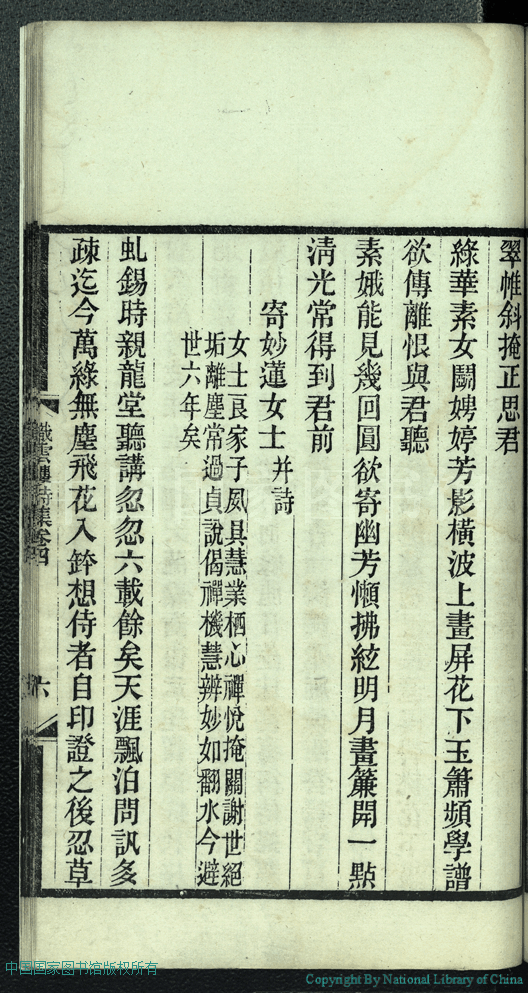 翠帷斜掩正思君
綠華素女鬭娉婷芳影橫波上畫屏花下玉簫頻學譜
欲傳離恨與君聽
素娥能見幾回圓欲寄幽芳懶拂絃明月畫簾開一點
清光常得到君前
寄妙蓮女士并詩
女士良家子夙具慧業栖心禪悅掩關謝世絕
垢離塵常過貞說偈禪機慧辨妙如翻水今避
世六年矣
虬錫時親龍堂聽講忽忽六載餘矣天涯飄泊問訊多
疎迄今萬緣無塵飛花入鉢想侍者自印證之後忍草
織雲樓詩集卷四
六
中国国家图书馆版权所有
Copyright By National Library of China